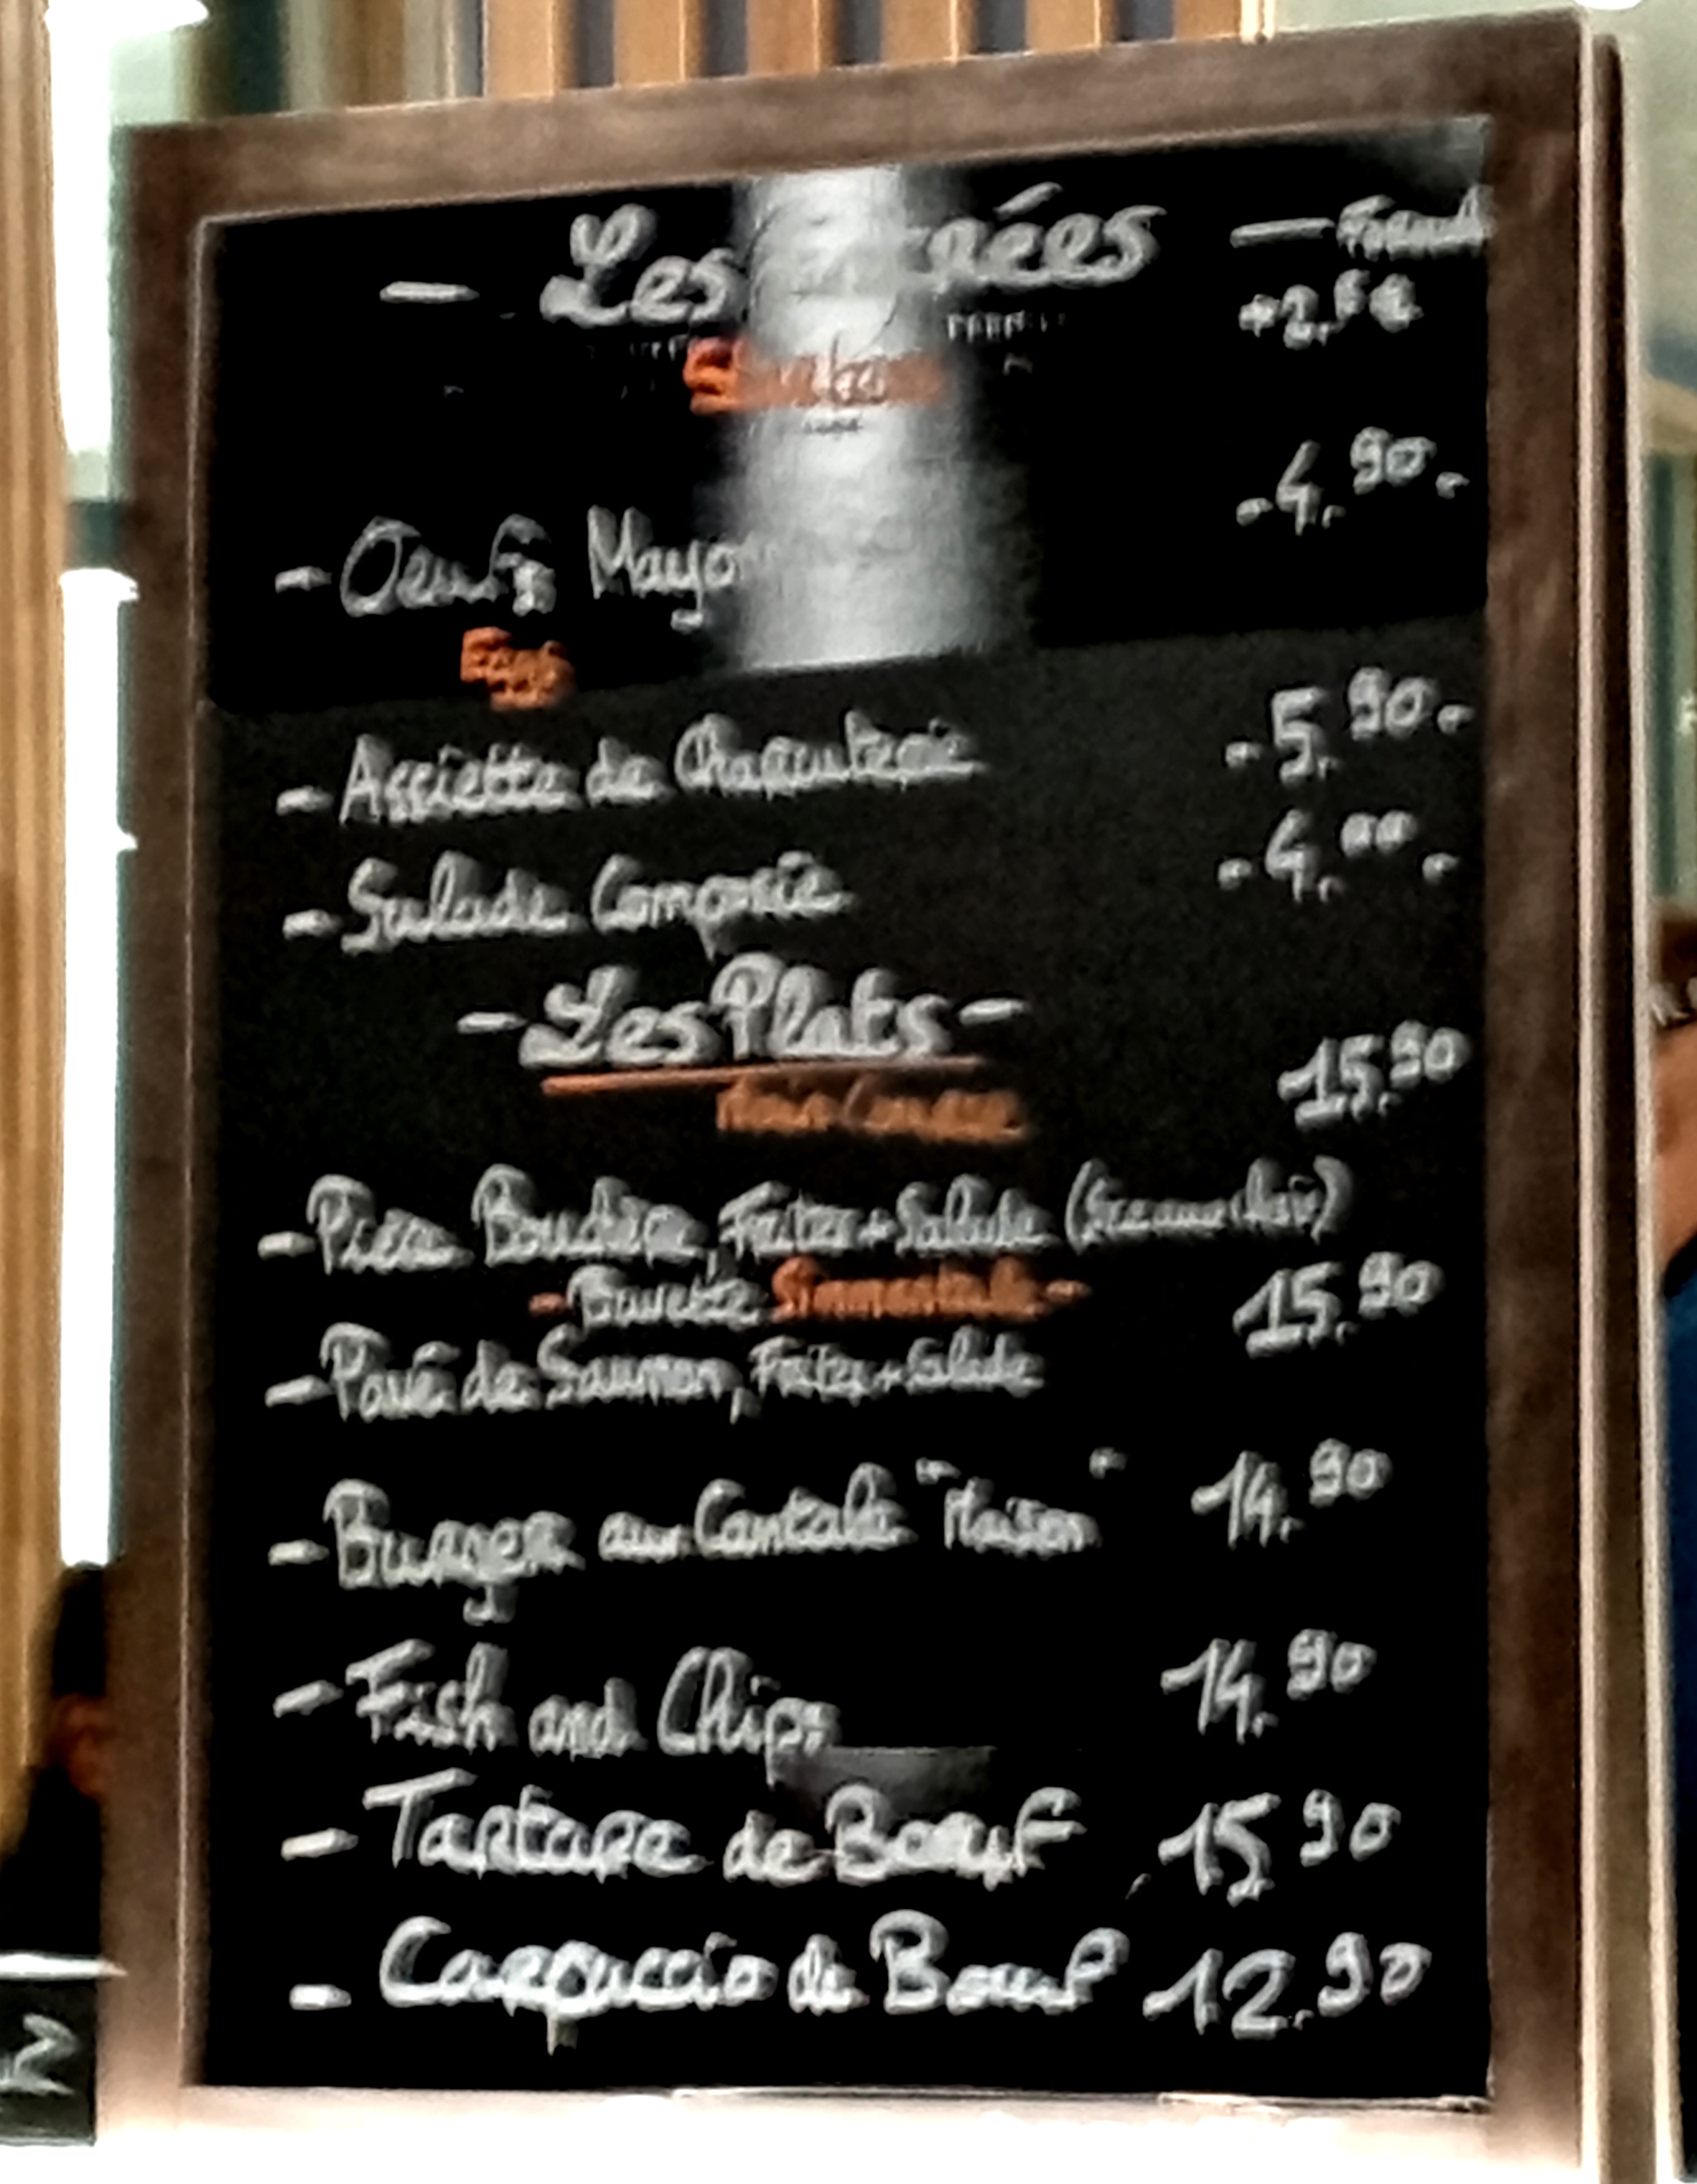 — Les
+2,
- Oeufs Mayo -4,90-
- Assiette de Charcuterie -5,90-
- Salade Composée -4,00-
- Les Plats -
15,90
- Pièce Bouchère, Frites + Salade
- Bavette Simmental -
15,90
- Pavé de Saumon, Frites + Salade
- Burger au Cantal "Maison" 14,90
- Fish and Chips 14,90
- Tartare de Boeuf 15,90
- Carpaccio de Boeuf 12,90
2